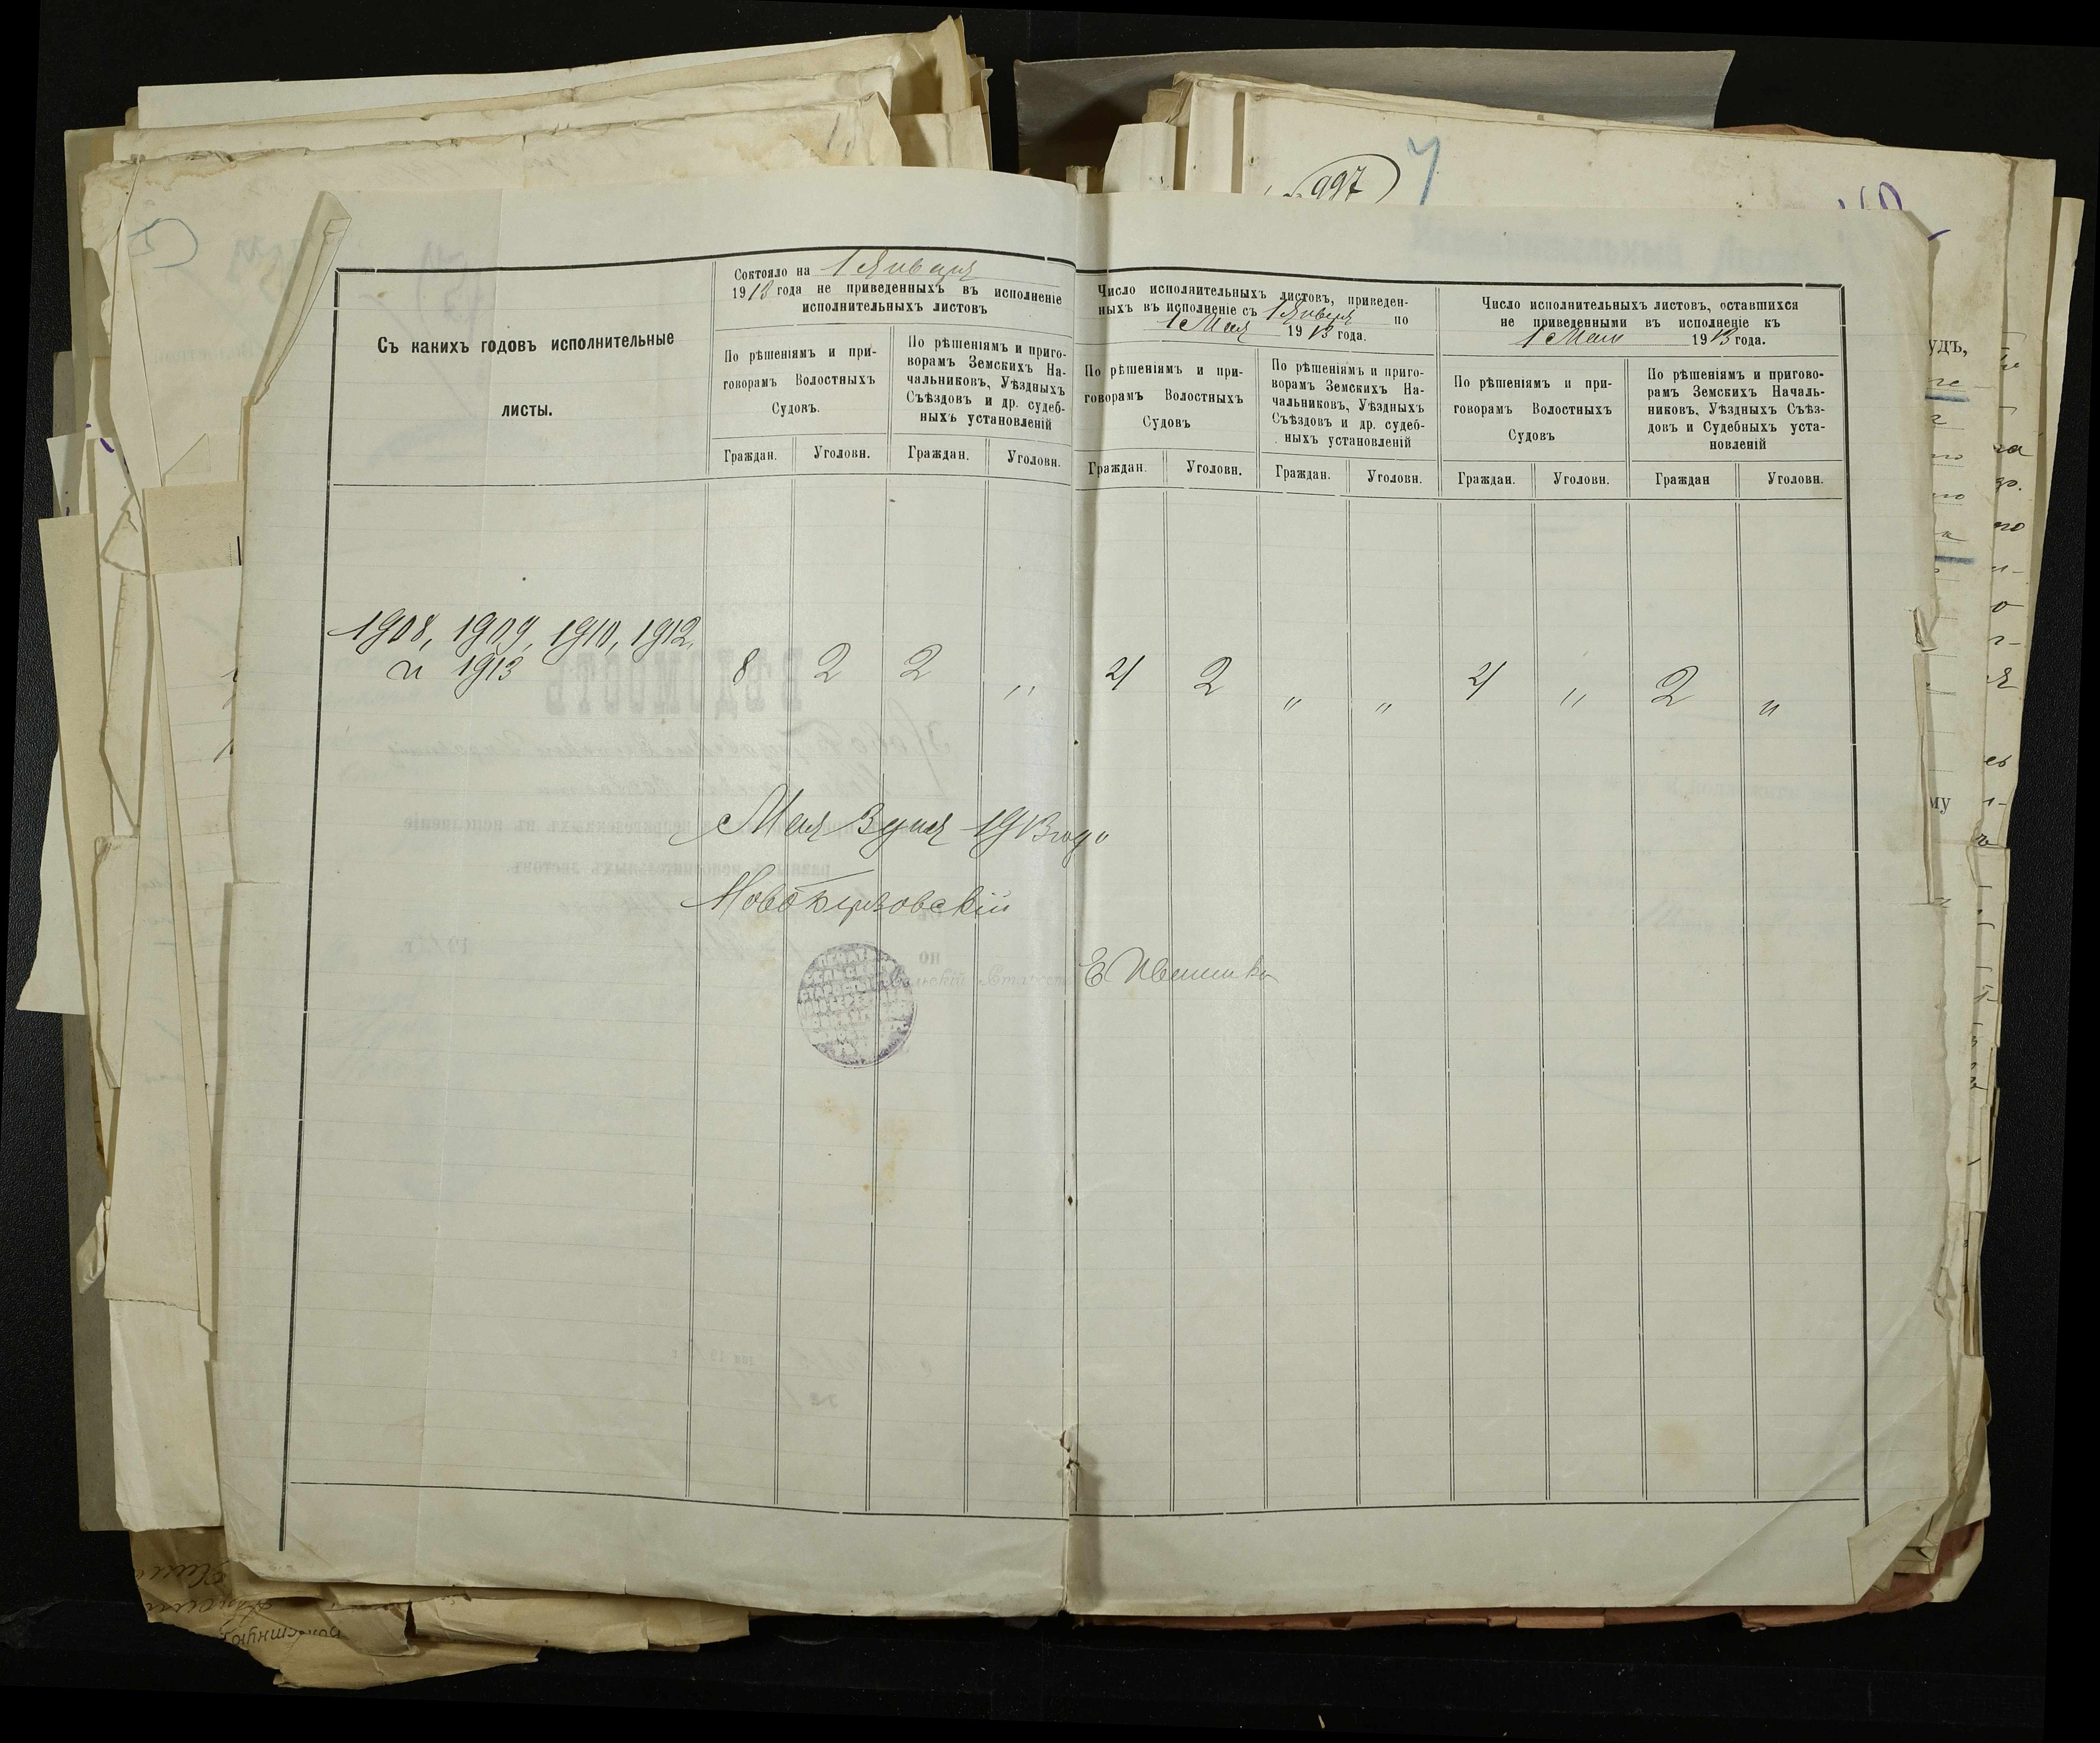 997
Съ какихъ годовъ исполнительные
листы.
Состояло на 1 Января
1913 года не приведенныхъ въ исполненіе
исполнительныхъ листовъ
По рѣшеніямъ и при-
говорамъ Волостныхъ
Судовъ.
По рѣшеніямъ и приго-
ворамъ Земскихъ На-
чальниковъ, Уѣздныхъ
Съѣздовъ и др. судеб-
ныхъ установленій
Граждан. Уголовн. Граждан. Уголовн.
Число исполнительныхъ листовъ, приведен-
ныхъ въ исполненіе съ 1 Января по
1 Мая 1913 года.
По рѣшеніямъ и при-
говорамъ Волостныхъ
Судовъ
По рѣшеніямъ и приго-
ворамъ Земскихъ На-
чальниковъ, Уѣздныхъ
Съѣздовъ и др. судеб-
ныхъ установленій
Граждан. Уголовн. Граждан. Уголовн.
Число исполнительныхъ листовъ, оставшихся
не приведенными въ исполненіе къ
1 Маю 1913 года.
По рѣшеніямъ и при-
говорамъ Волостныхъ
Судовъ
По рѣшеніямъ и пригово-
рамъ Земскихъ Началь-
никовъ, Уѣздныхъ Съѣз-
довъ и Судебныхъ уста-
новленій
Граждан. Уголовн. Граждан Уголовн.
1908, 1909, 1910, 1912,
и 1913 8 2 2 „ 4 2 „ „ 4 „ 2 „
Мая 3 дня 1913 года
Сельскій Староста Е